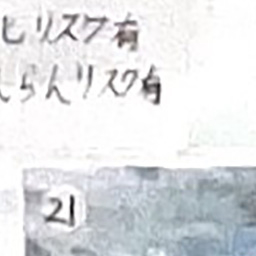 ヒリスク有
んらんリスク有
21